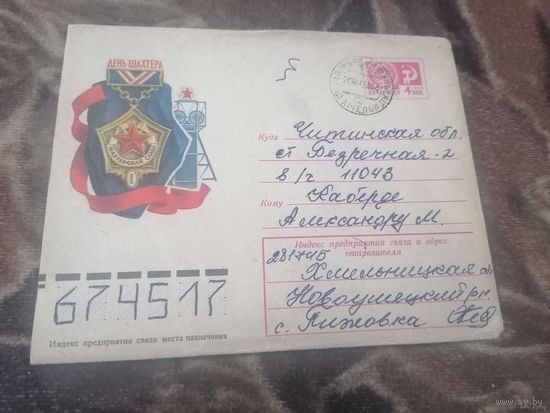 ДЕНЬ ШАХТЕРА
ШАХТЕРСКАЯ СЛАВА
4 коп.
Куда Читинская обл.
ст Безречная-2
в/ч 11043
Кому
Александру М.
Индекс предприятия связи и адрес
отправителя
281745
Хмельницкая
Новоушецкий рн
с. Пижовка
674517
Индекс предприятия связи места назначения
www.ay.by